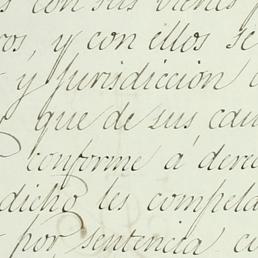 con sus vienes
ros, y con ellos se
y Jurisdicción
que de sus cau
conforme á dere
dicho les compela
por sentencia